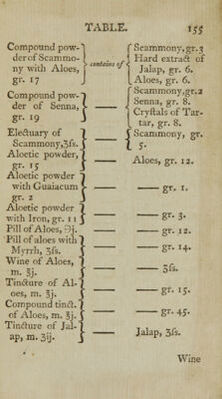 TABLE. 155
Compound pow-
der of Scammo-
ny with Aloes,
gr. 17
contains of
Scammony, gr. 3
Hard extract of
Jalap, gr. 6.
Aloes, gr. 6.
Compound pow-
der of Senna,
gr. 19
Scammony, gr. 2
Senna, gr. 8.
Crystals of Tar-
tar, gr. 8.
Electuary of
Scammony, ʒſs.
Scammony, gr.
5.
Aloetic powder,
gr. 15
Aloes, gr. 12.
Aloetic powder
with Guaiacum
gr. 2
gr. 1.
Aloetic powder
with Iron, gr. 11
gr. 3.
Pill of Aloes, ℈j.
gr. 12.
Pill of aloes with
Myrrh, ʒſs.
gr. 14.
Wine of Aloes,
m. ℥j.
ʒſs.
Tincture of Al-
oes, m. ℥j.
gr. 15.
Compound tinct.
of Aloes, m. ℥j.
gr. 45.
Tincture of Jal-
ap, m. ℥ij.
Jalap, ʒſs.
Wine